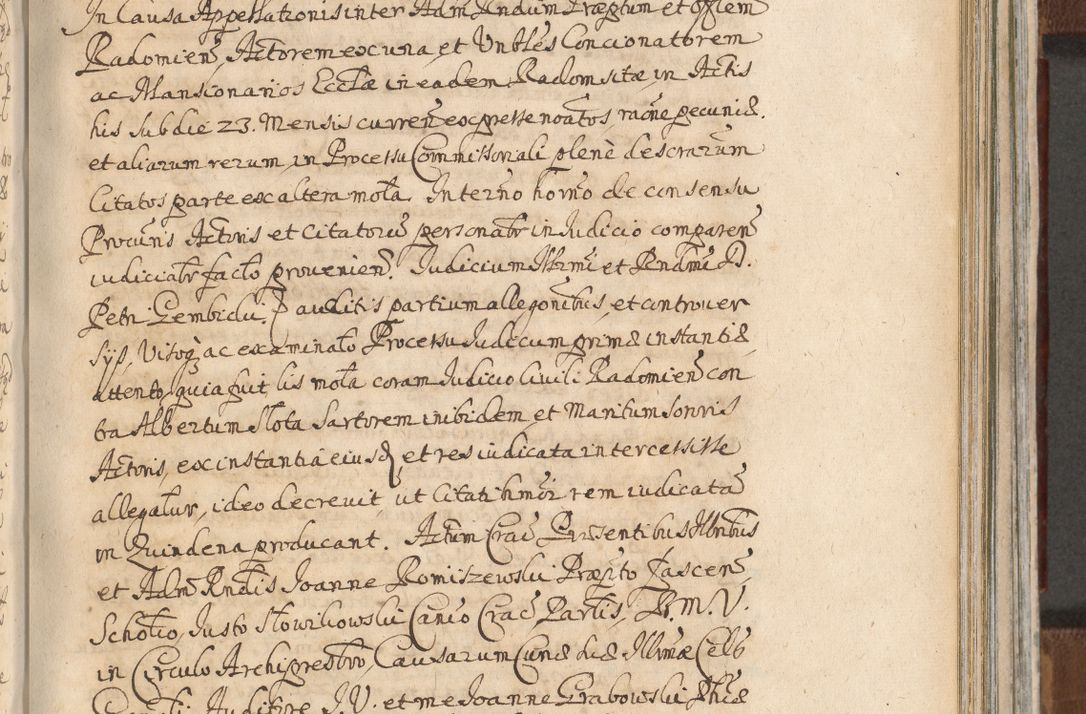 In Causa Appellationis inter Adm Rndum Præptum et Offlem
Radomieñ, Actorem ex una, et Vnbles Concionatorem
ac Mansionarios Ecclæ in eadem Radom sitæ in Actis
his sub die 23. Mensis curreñ expresse noatos, raõne pecuniæ.
et aliarum rerum in Processu Commissoriali plenè descrarum
Citatos parte ex altera mota. In termõ horno de consensu
Procuris Actoris et Citatorũ personalr in Iudicio compareñ
iudicialr facto provenieñ. Iudicium Illrmi et Rndmi D.
Petri Gembicki, auditis partium allegonibus, et controver
syß, Visoq ac examinato Processu Iudicum primæ instantiæ,
attento, quia fuit lis mota coram Iudicio Civili Radomieñ con
tra Albertum Slota Sartorem inibidem et Maritum Sororis
Actoris, ex instantia eiusd, et res iudicata intercessisse
allegatur, ideo decrevit, ut Citati hmõi rem iudicatã
in Quindena producant. Actum Crac Præsentibus Illribus
et Adm Rndis Ioanne Romiszewski Præpto Jasceñ,
Scholico, Iusto Slowikowski Canco Crac Partis, P. M. V.
in Circulo Archipresbro, Causarum Curiæ suæ Illrmæ Cels
Iudice I. V. et me Ioanne Grabowski Phiæ